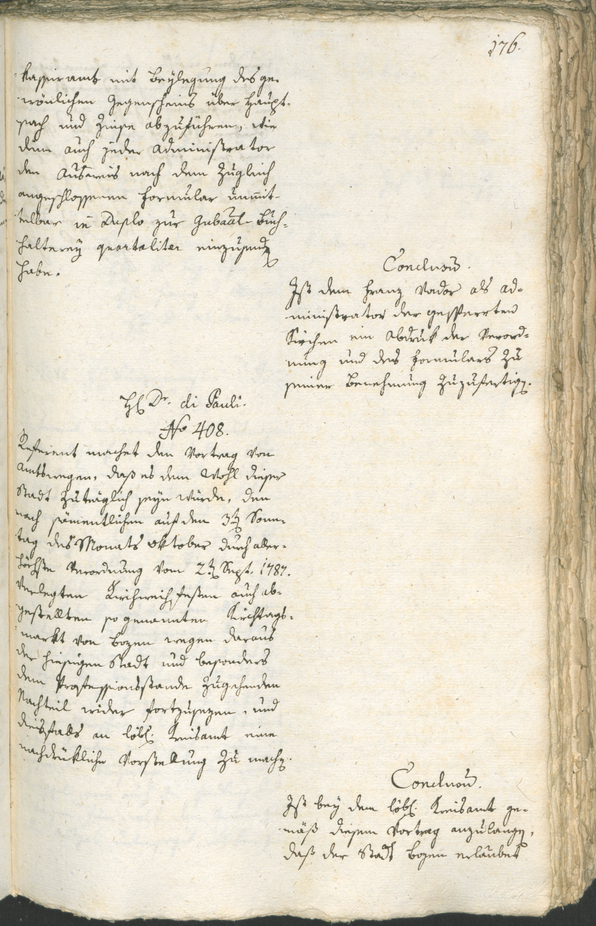 176.
Kassieramt mit Beylegung des ge-
wönlichen Gegenscheins über Haupt-
sach und Zinse abzuführen, wie
dann auch jeder Administrator
den Ausweis nach dem zugleich
angeschlossenen Formular unmit-
telbar in Duplo zur Gubaal-Buch-
halterey quartaliter einzusenden
habe.
Conclusum.
Ist dem Franz Vador als ad-
ministrator der gesperrten
Kirchen ein Abdruk der Verord-
nung und des Formulars zu
seiner Benehmung zuzufertigen.
H Dr. di Pauli.
No 408.
Referent machet den Vortrag von
Amtswegen, daß es dem Wohl dieser
Stadt zuträglich seyn würde, den
nach sämentlichen auf den 3ten Sonn-
tag des Monats oktober durch aller-
höchste Verordnung vom 2ten Sept. 1787.
verlegten Kirchweihfesten auch ab-
gestellten so genannten Kirchtags-
markt von Bozen wegen daraus
der hiesigen Stadt und besonders
dem Professionsstande zugehenden
Nachteil wider fortzusezen, und
diesfalls an löbl: Kreisamt eine
nachdrükliche Vorstellung zu machen.
Conclusum.
Ist bey dem löbl: Kreisamt ge-
mäß diesem Vortrag anzulangen,
daß der Stadt Bozen erlaubet